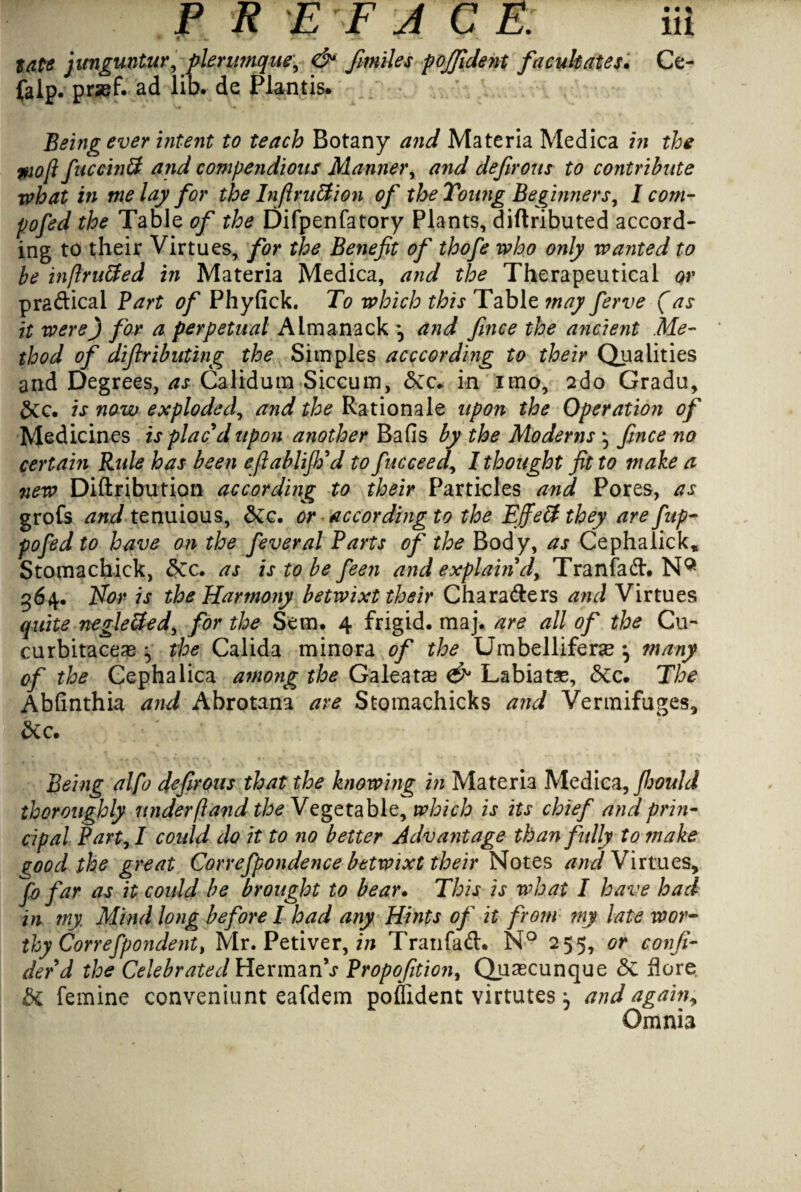 PREFACE. iii
tate junguntur, plerumque, & ſimiles poſſident facultates. Ce-
ſalp. præf. ad lib. de Plantis.
Being ever intent to teach Botany and Materia Medica in the
moſt ſuccinct and compendious Manner, and deſirous to contribute
what in me lay for the Inſtruction of the Young Beginners, I com-
poſed the Table of the Diſpenſatory Plants, diſtributed accord-
ing to their Virtues, for the Benefit of thoſe who only wanted to
be inſtructed in Materia Medica, and the Therapeutical or
practical Part of Phyſick. To which this Table may ſerve (as
it were) for a perpetual Almanack; and ſince the ancient Me-
thod of diſtributing the Simples acccording to their Qualities
and Degrees, as Calidum Siccum, &c. in 1mo, 2do Gradu,
&c. is now exploded, and the Rationale upon the Operation of
Medicines is plac'd upon another Baſis by the Moderns; ſince no
certain Rule has been eſtabliſh'd to ſucceed, I thought fit to make a
new Diſtribution according to their Particles and Pores, as
groſs and tenuious, &c. or according to the Effect they are ſup-
poſed to have on the ſeveral Parts of the Body, as Cephalick,
Stomachick, &c. as is to be ſeen and explain'd, Tranſact. Nº
364. Nor is the Harmony betwixt their Characters and Virtues
quite neglected, for the Sem. 4 frigid. maj. are all of the Cu-
curbitaceæ; the Calida minora of the Umbelliferæ; many
of the Cephalica among the Galeatæ & Labiatæ, &c. The
Abſinthia and Abrotana are Stomachicks and Vermifuges,
&c.
Being alſo deſirous that the knowing in Materia Medica, ſhould
thoroughly underſtand the Vegetable, which is its chief and prin-
cipal Part, I could do it to no better Advantage than fully to make
good the great Correſpondence betwixt their Notes and Virtues,
ſo far as it could be brought to bear. This is what I have had
in my Mind long before I had any Hints of it from my late wor-
thy Correſpondent, Mr. Petiver, in Tranſact. Nº 255, or conſi-
der'd the Celebrated Herman's Propoſition, Quæcunque & flore
& ſemine conveniunt eaſdem poſſident virtutes; and again,
Omnia